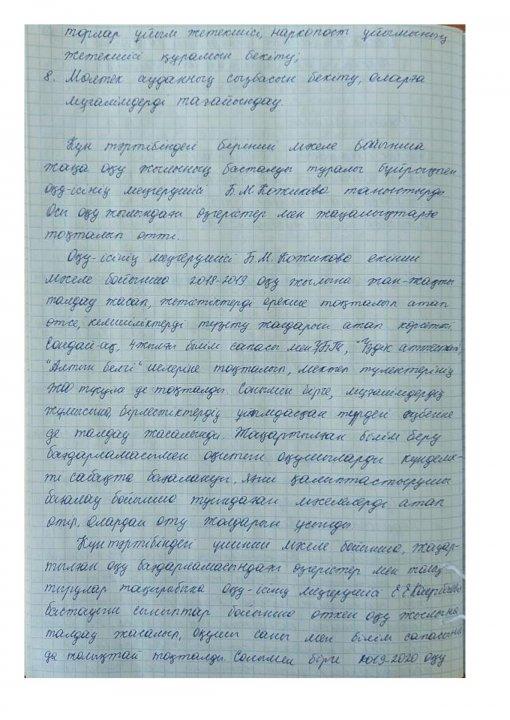 торлар ұйым жетекшісі, наркопост ұйымының
жетекшісі құрамын бекіту;
8. Мөлтек ауданның сызбасын бекіту, оларға
мұғалімдерді тағайындау.
Күн тәртібіндегі бірінші мәселе бойынша
жаңа оқу жылының басталды туралы бұйрықпен
оқу-ісінің меңгерушісі Б.М.Кожикова таныстырды
Осы оқу жылындағы өзгерістер мен жаңалықтарға
тоқталып өтті.
Оқу-ісінің меңгерушісі Б.М.Кожикова екінші
мәселе бойынша 2018-2019 оқу жылына жан-жақты
талдау жасап, жетістіктерді ерекше тоқталып атап
өтсе, кемшіліктерді түзету жолдарын атап көрсетті
Сондай-ақ, 4 жылғы білім сапасы мен ҰБТ, "Үздік аттестат"
"Алтын белгі" иелеріне тоқталып, мектеп түлектерінің
ЖОО түсуіне де тоқталды. Сонымен бірге, мұғалімдердің
жұмысына, бірлестіктердің ұйымдасқан түрдегі еңбегіне
де талдау жасалынды. Жаңартылған білім беру
бағдарламасымен оқитын оқушыларды күнделік-
ті сабақта бағаланады, яғни қалыптастырушы
бағалау бойынша туындаған мәселелерді атап
өтіп, олардан өту жолдарын ұсынды
Күн тәртібіндегі үшінші мәселе бойынша, жаңар-
тылған оқу бағдарламасындағы өзгерістер мен толық-
тырулар тақырыбына оқу-ісінің меңгерушісі Е.Е.
бастауыш сыныптар бойынша өткен оқу жылына
талдау жасалып, оқушы саны мен білім сапасына
да толықтай тоқталды. Сонымен бірге 2019-2020 оқу